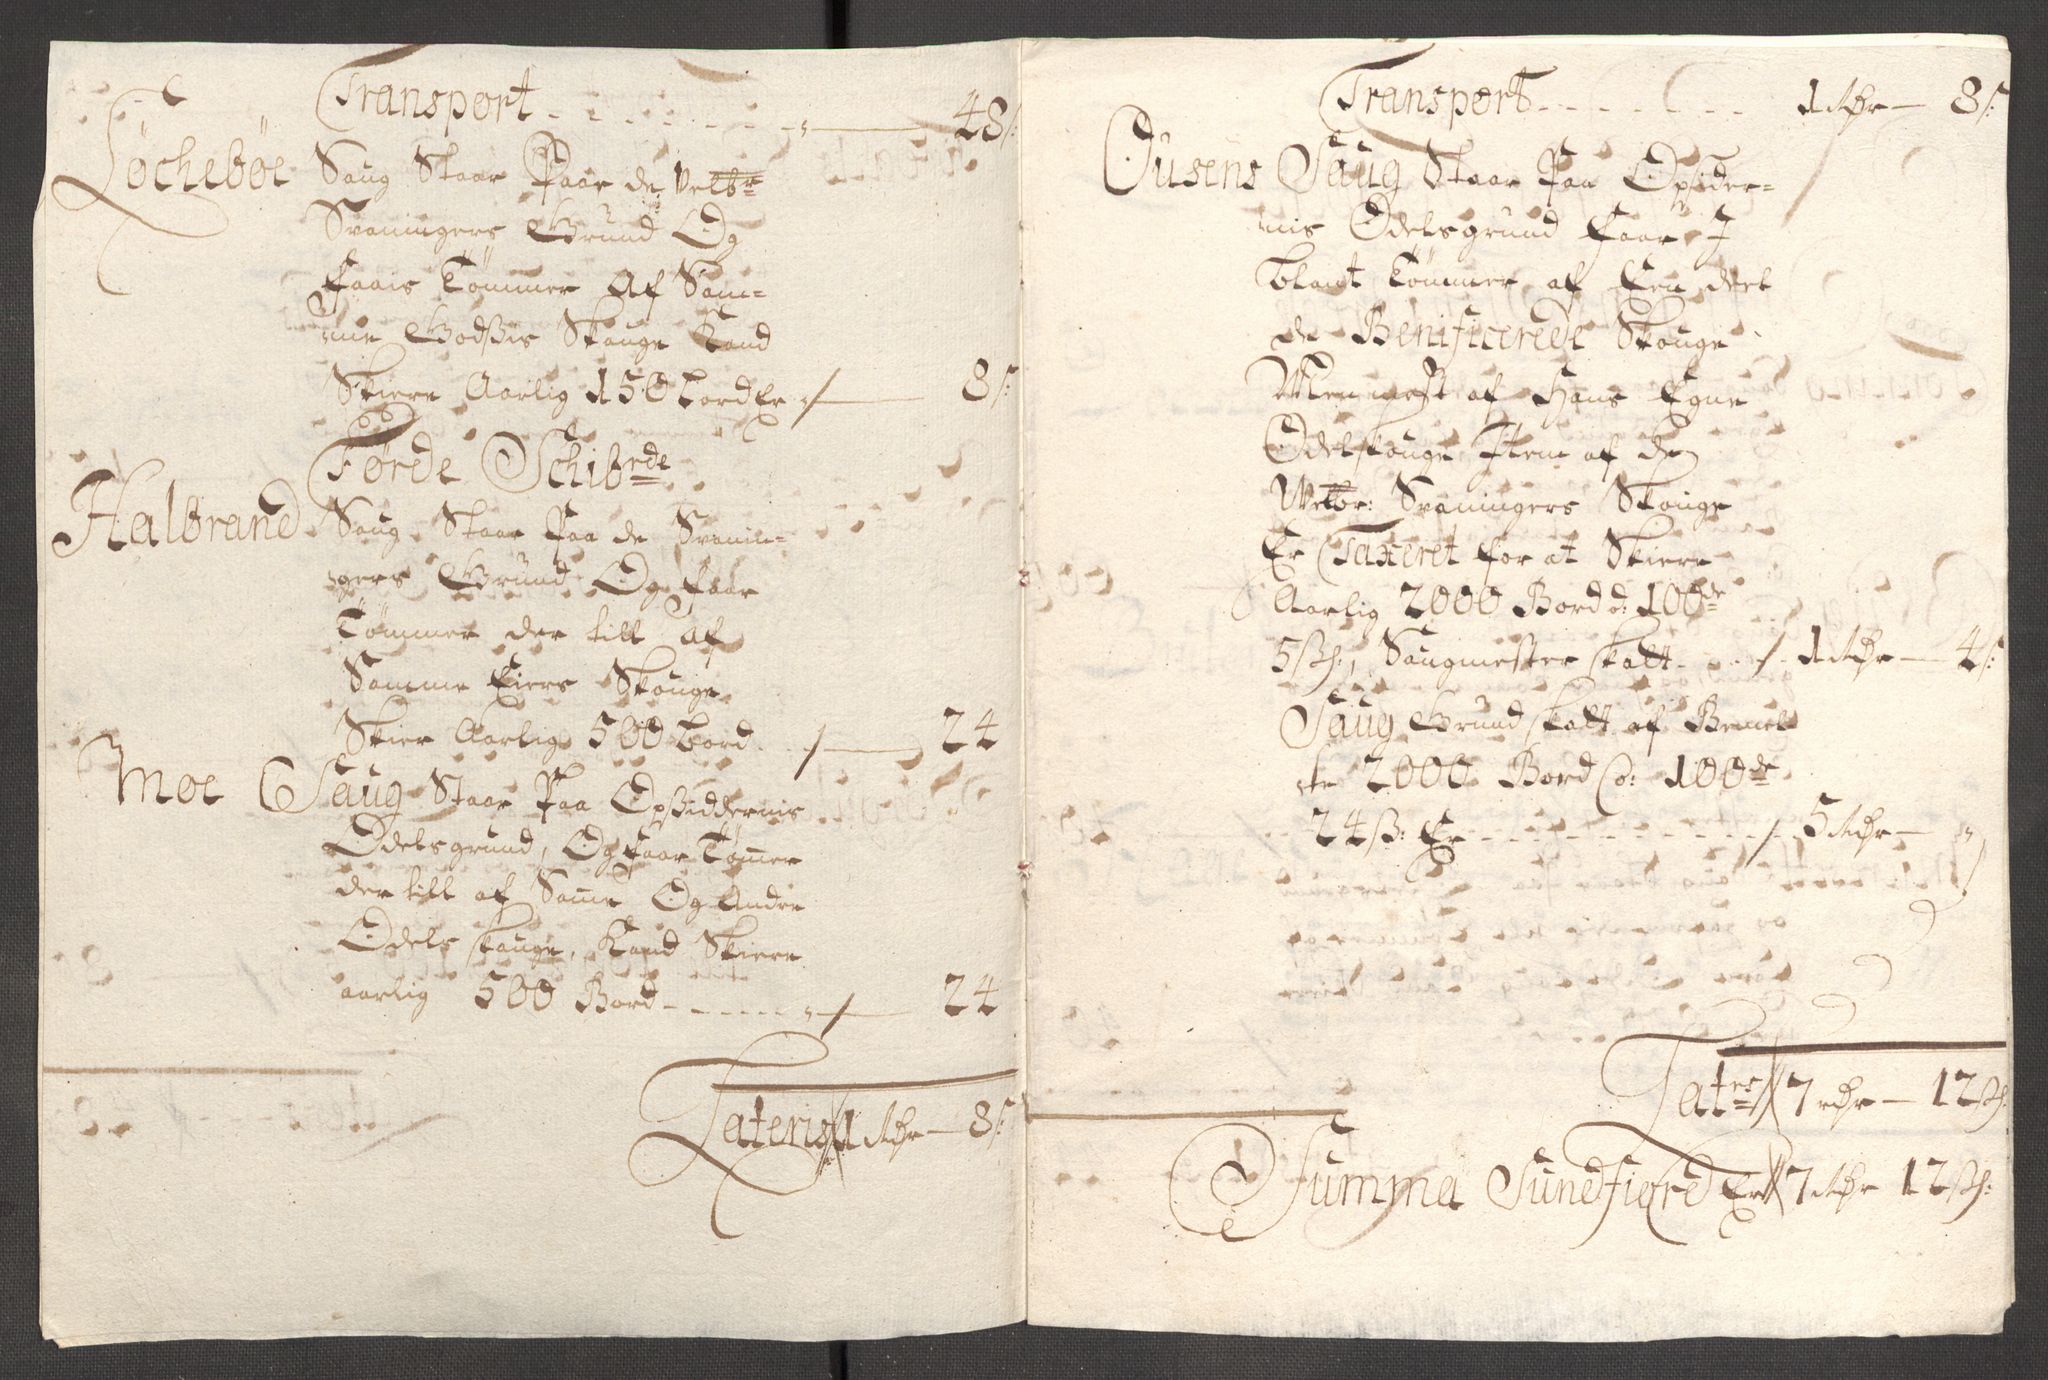 Transport - - - - - - - 48 s:
Löcheböe Saug Staar Paa de Velbr
Svaningers Grund Og
faais Tömmer Af Sam=
me Godsses Skouge Kand
Skiere Aarlig 150 bord Er 8 s:
Förde Schibrde
Halbrand Saug Staar Paa de Svanin=
gers Grund Og faar
Tömmer der till af
Samme Eiers Skouge
Skier Aarlig 500 bord 24
Moe Saug Staar Paa Opsiddernis
Odelsgrund, Og faar Tömer
der till af Same Og Andre
Odels skouge, Kand Skiere
aarlig 500 Bord - - - - - 24
Lateris 1 Rdr - 8 s:
Transport - - - - - - 1 Rdr - 8 s:
Ousens Saug Staar Paa Opsider=
nis Odelsgrund faar I
blant Tömmer af Een deel
de Benificerede Skouge
Men mest af Hans Egne
Odelskouge Item af de
Velbr: Svaningers Skouge
Er Taxeret for at Skiere
Aarlig 2000 Bord d: 100de
5 sh:, Saugmester skatt - - - 1 Rdr - 4 s:
Saug Grund skatt af Bemel
te 2000 Bord Co: 100de
24 ß: Er - - - - - - - 5 Rdr - "
Latrs 7 rdr - 12 sh:
Summa Sundfiord Er 7 Rdr 12 sh: